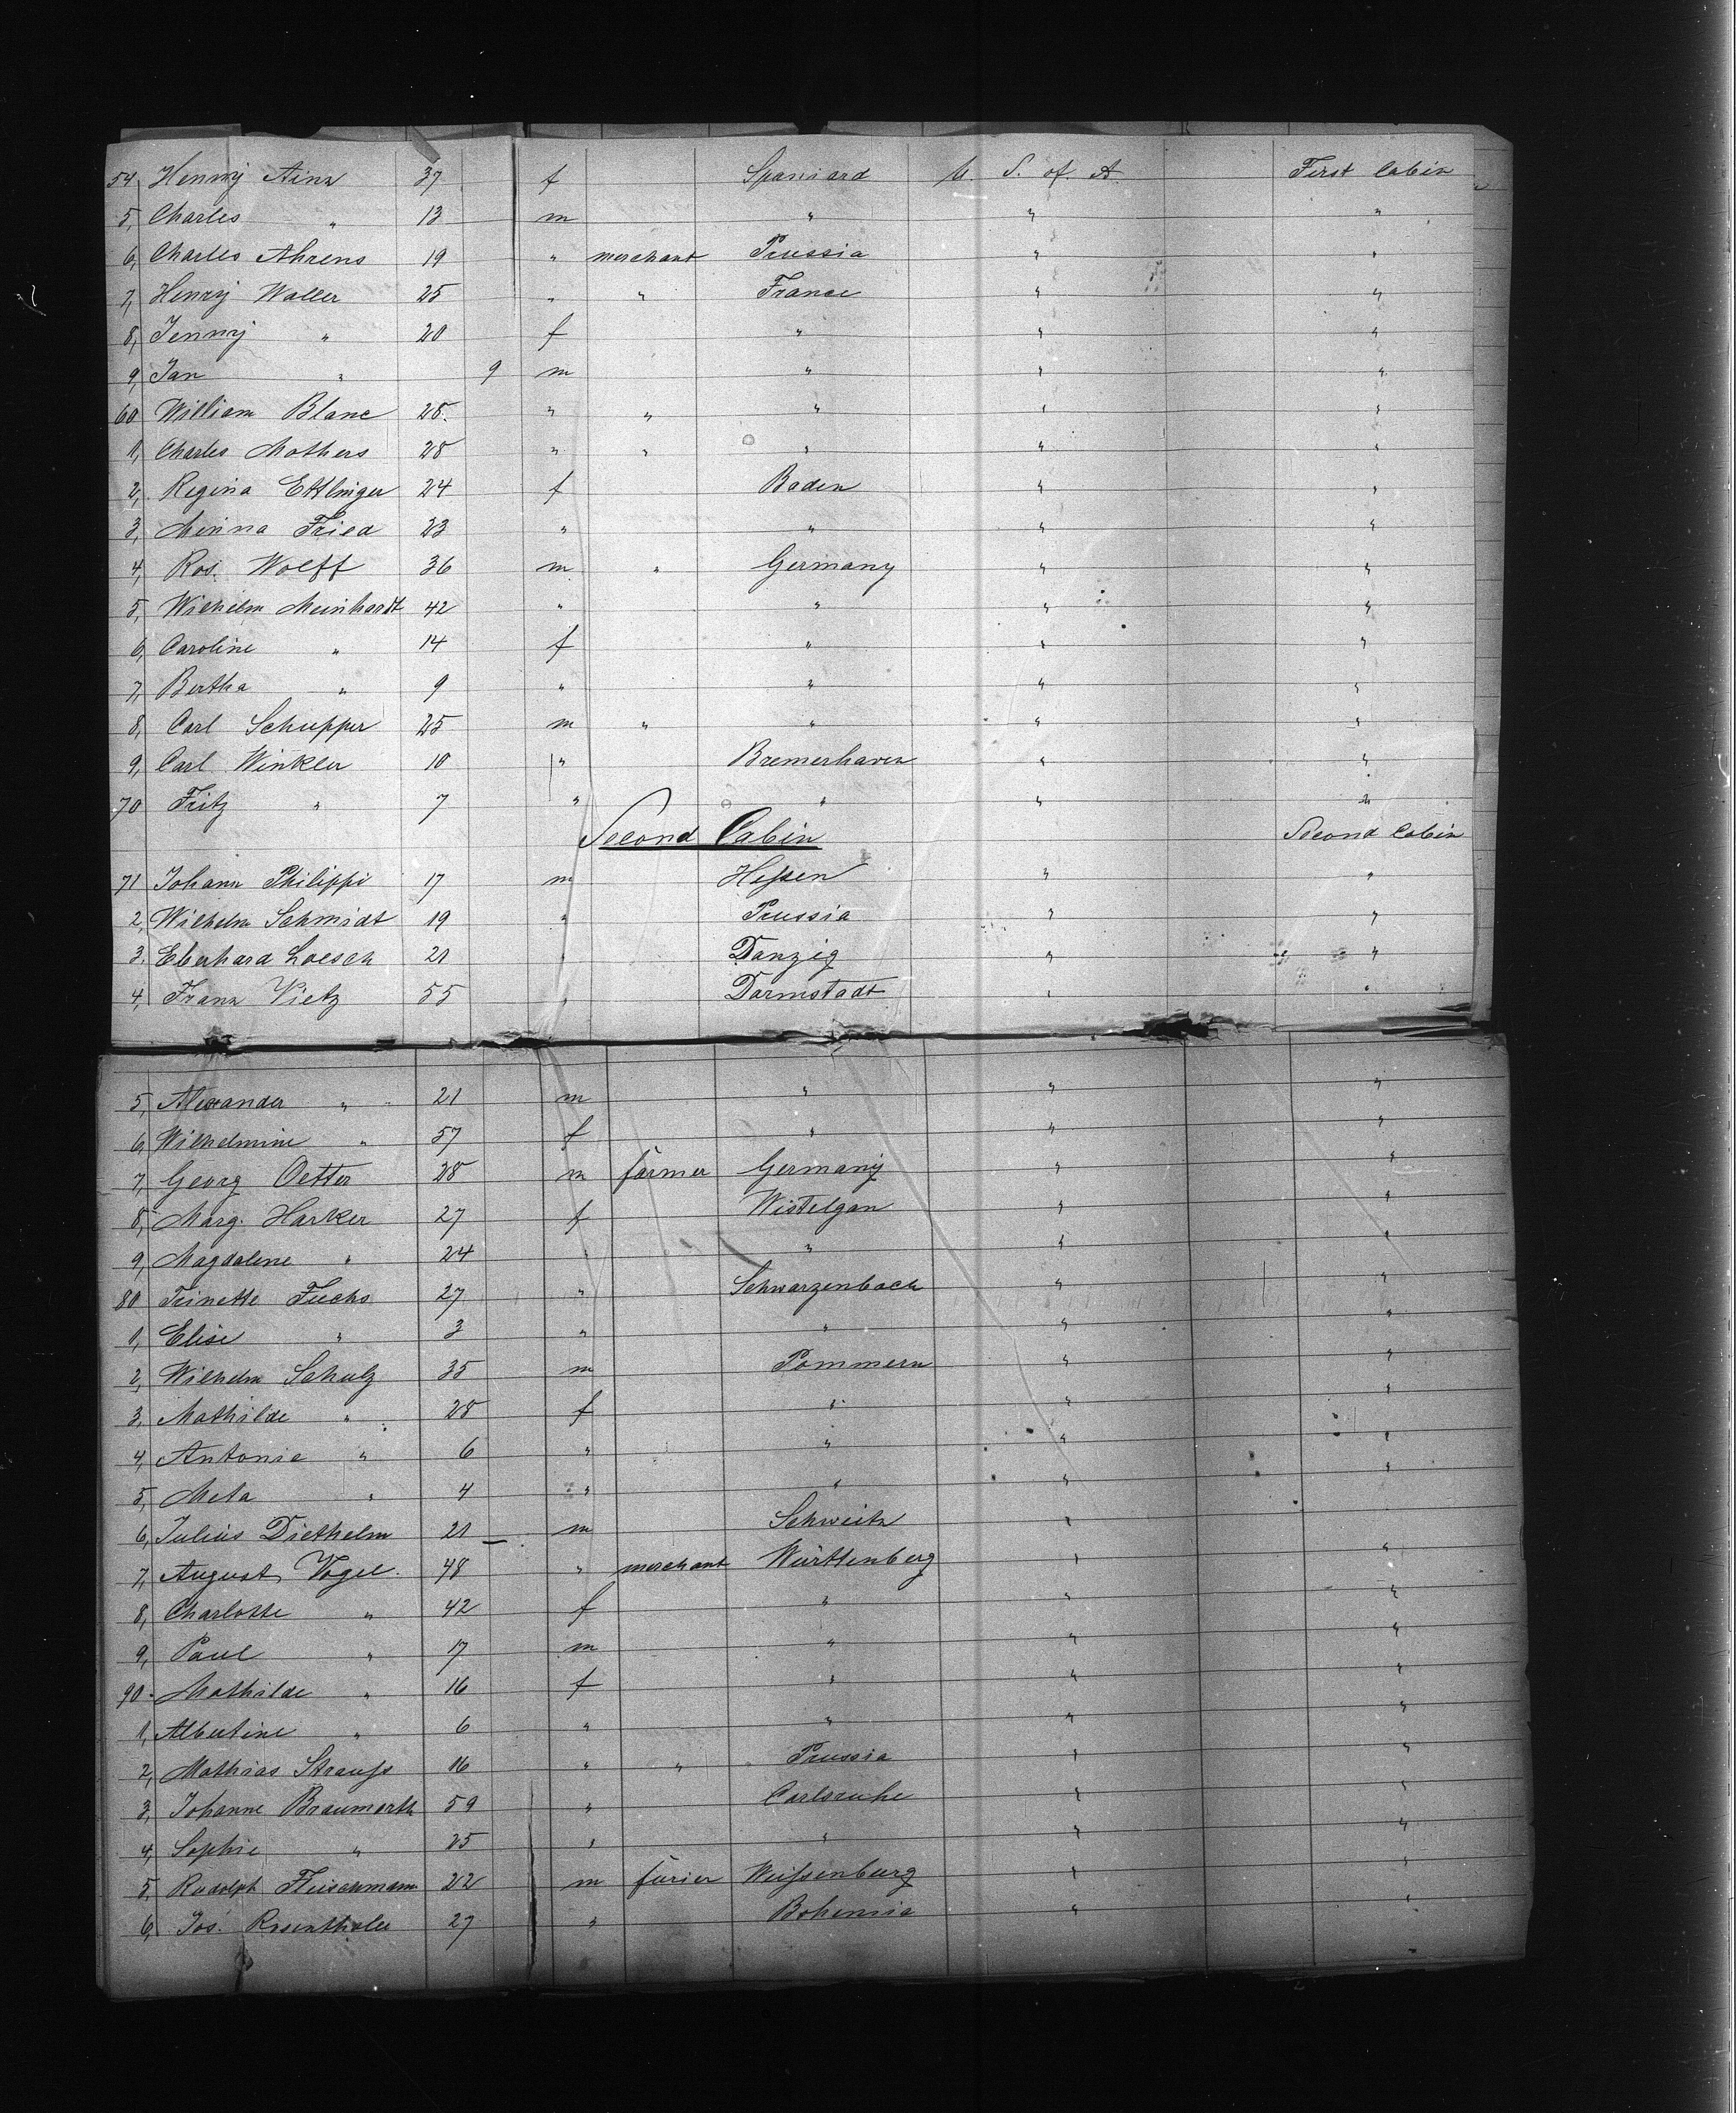 54, Henny Ainz 37 f Spaniard U. S. of. A. First Cabin
5, Charles " 13 m " " "
6, Charles Ahrens 19 " merchant Prussia " "
7, Henry Waller 25 " " France " "
8, Jenny " 20 f " " "
9, Jan " 9 m " " "
60 William Blanc 28. " " " " "
1, Charles Mothers 28 " " " " "
2, Regina Ettlinger 24 f Baden " "
3, Minna Fried 23 " " " "
4, Ros. Wolff 36 m " Germany " "
5, Wilhelm Meinhardt 42 " " " "
6, Caroline " 14 f " " "
7, Bertha " 9 " " " "
8, Carl Schupper 25 m " " " "
9, Carl Winkler 10 " Bremerhaven " "
70 Fritz " 7 " " " "
Second Cabin Second Cabin
71 Johann Philippi 17 m Hessen " "
2, Wilhelm Schmidt 19 " Prussia " "
3. Eberhard Loesch 21 " Danzig " "
4, Franz Vietz 55 " Darmstadt " "
5, Alexander " 21 m " " "
6, Wilhelmine " 57 f " " "
7, Georg Oetter 28 m farmer Germany " "
8, Marg. Harker 27 f Wistelgan " "
9, Magdalene " 24 " " " "
80 Trinette Fuchs 27 " Schwarzenbach " "
1, Elise " 3 " " " "
2, Wilhelm Schulz 35 m Pommern " "
3, Mathilde " 28 f " " "
4, Antonie " 6 " " " "
5, Meta " 4 " " " "
6, Julius Diethelm 21 m Schweitz "
7, August Vogel. 48 " merchant Württenberg " "
8, Charlotte " 42 f " " "
9, Paul " 17 m " " "
90. Mathilde " 16 f " " "
1, Albertine " 6 " " " "
2, Mathias Strauss 16 " " Prussia " "
3, Johanne Braumarth 59 " Carlsruhe " "
4, Sophie " 25 " " " "
5, Rudolph Fleischmann 22 m furier Weissenburg " "
6, Jos. Rosenthaler 27 " Bohemia " "